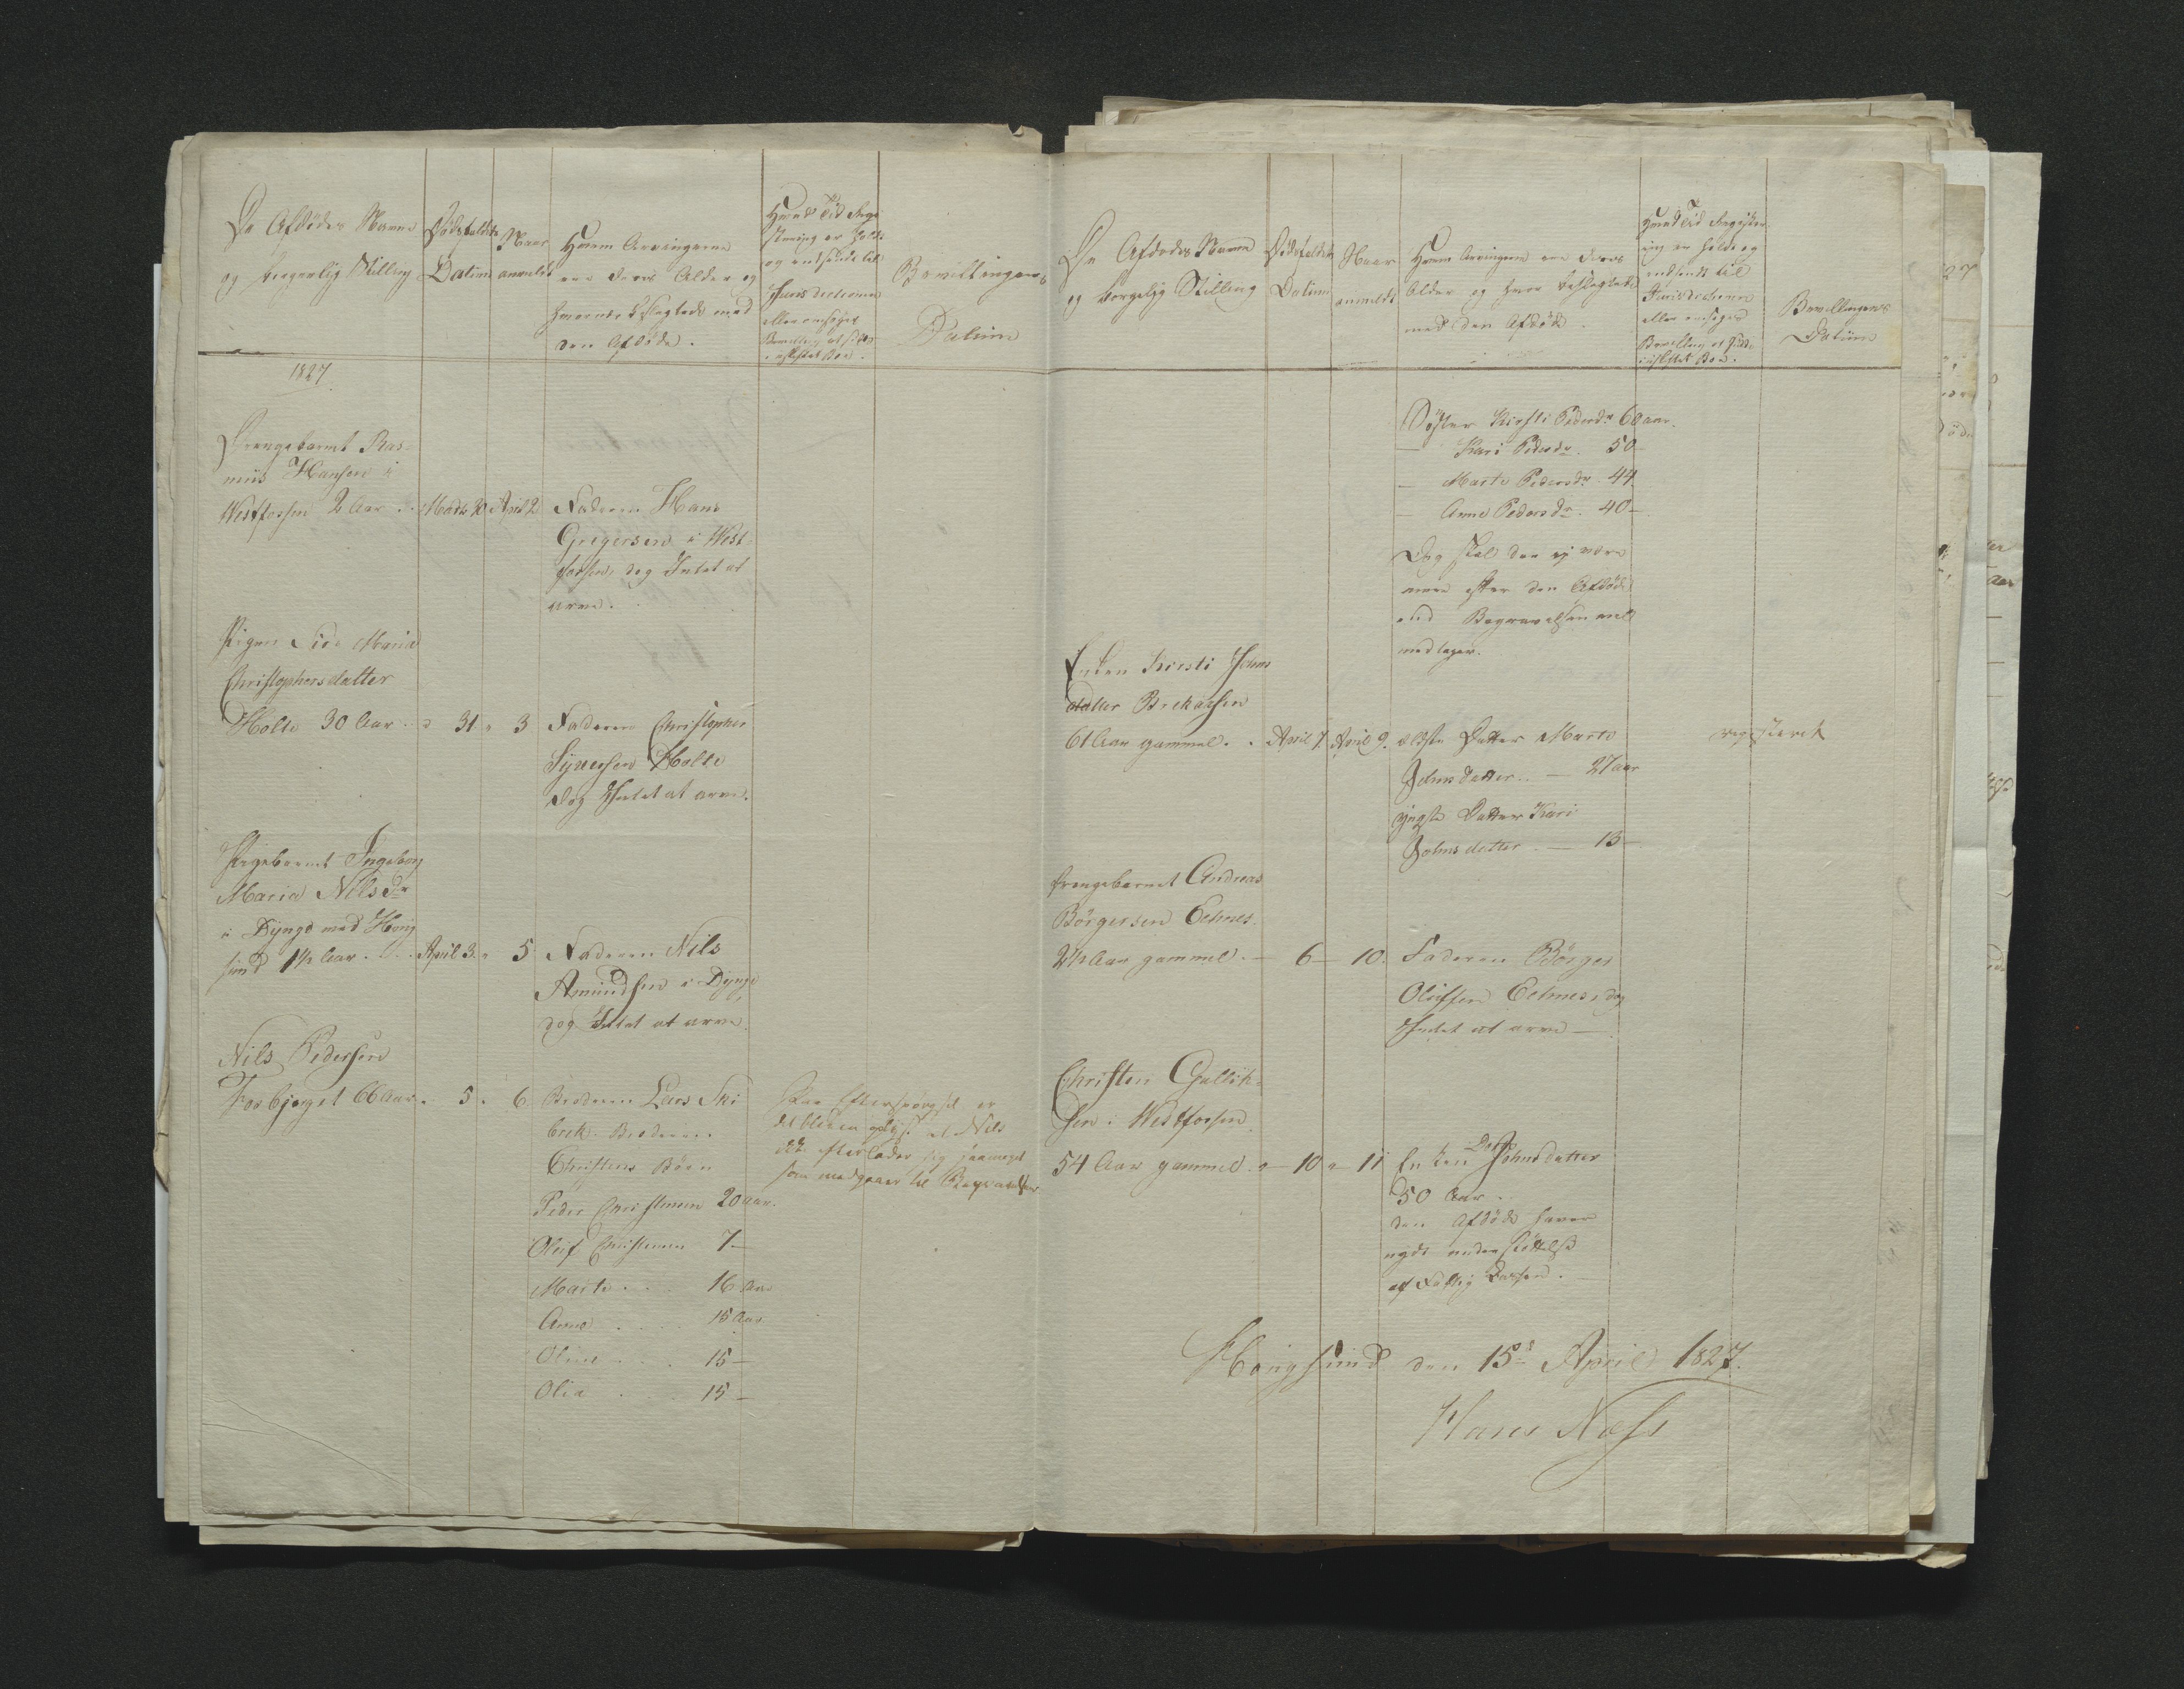 De Afdødes Navne
og borgerlig Stilling
Dødsfaldets
Datum
Naar
anmeldt
Hvem Arvingerne
ere deres Alder og
hvornær beslægtede med
den Afdøde.
Hvad Tid Regi
strering er holdt
og indsendt til
Jurisdictionen
eller ansøgt
Bevilling at sidde
i uskiftet Boe.
Bevillingens
Datum
1827
Drengebarnet Ras
mus Hansen i
Westfossen 2 Aar . .
Marts 30
April 2
Faderen Hans
Gregersen i West
fossen, dog Intet at
arve.
Pigen Siri Maria
Christophersdatter
Holte 30 Aar . .
" 31
" 3
Faderen Christopher
Syversen Holte
dog Intet at arve.
Pigebarnet Ingeborg
Maria Nilsdr
i Dynge med Hong
sund 1 1/2 Aar . . .
April 3.
" 5
Faderen Nils
Amundsen i Dynge
dog Intet at arve.
Nils Pedersen
Fosbjerget 66 Aar.
" 5.
" 6
Broderen Lars Ski
brek. Broderen
Christens Børn
Peder Christensen 20 aar.
Oluf Christensen 7 —
Marte . . . 16 Aar
Anne . . . . 15 Aar
Oline . . . 15 —
Olia . . . 15 —
Paa Efterspørgsel er
det bleven oplyst at Nils
ikke efterlader sig saameget
som medgaaer til Begravelsen
De Afdødes Navne
og borgerlig Stilling
Dødsfaldets
Datum
Naar
anmeldt
Hvem Arvingerne ere deres
Alder og hvor beslægtede
med den Afdøde.
Hvad Tid Registrer
ing er holdt og
indsendt til
Jurisdictionen
eller ansøgt
Bevilling at sidde
i uskiftet Boe.
Bevillingens
Datum
Søster Kirsti Pedersdr 60 aar.
— Kari Pedersdr. 50 —
— Marte Pedersdr. 44
— Anne Pedersdr. 40 —
Dog skal der ej være
mere efter den Afdøde
end Begravelsen vil
medtage.
Enken Kirsti Johns
datter Brekaasen
61 Aar gammel. .
April 7
April 9.
ældste Datter Marte
Johnsdatter . . — 27 aar
yngste Datter Kari
Johnsdatter . — 13 —
registeret
Drengebarnet Andreas
Børgersen Eehnes
2 1/2 Aar gammel. —
6 —
10.
Faderen Børger
Olufsen Eehnes, dog
Intet at arve —
Christen Gullik
sen i Westfossen
54 Aar gammel. "
10 "
11
Enken Johnsdatter
50 Aar.
den Afdøde haver
nydt understøttelse
af Fattig Cassen. —
Hongsund den 15de April 1827.
Hans Næss